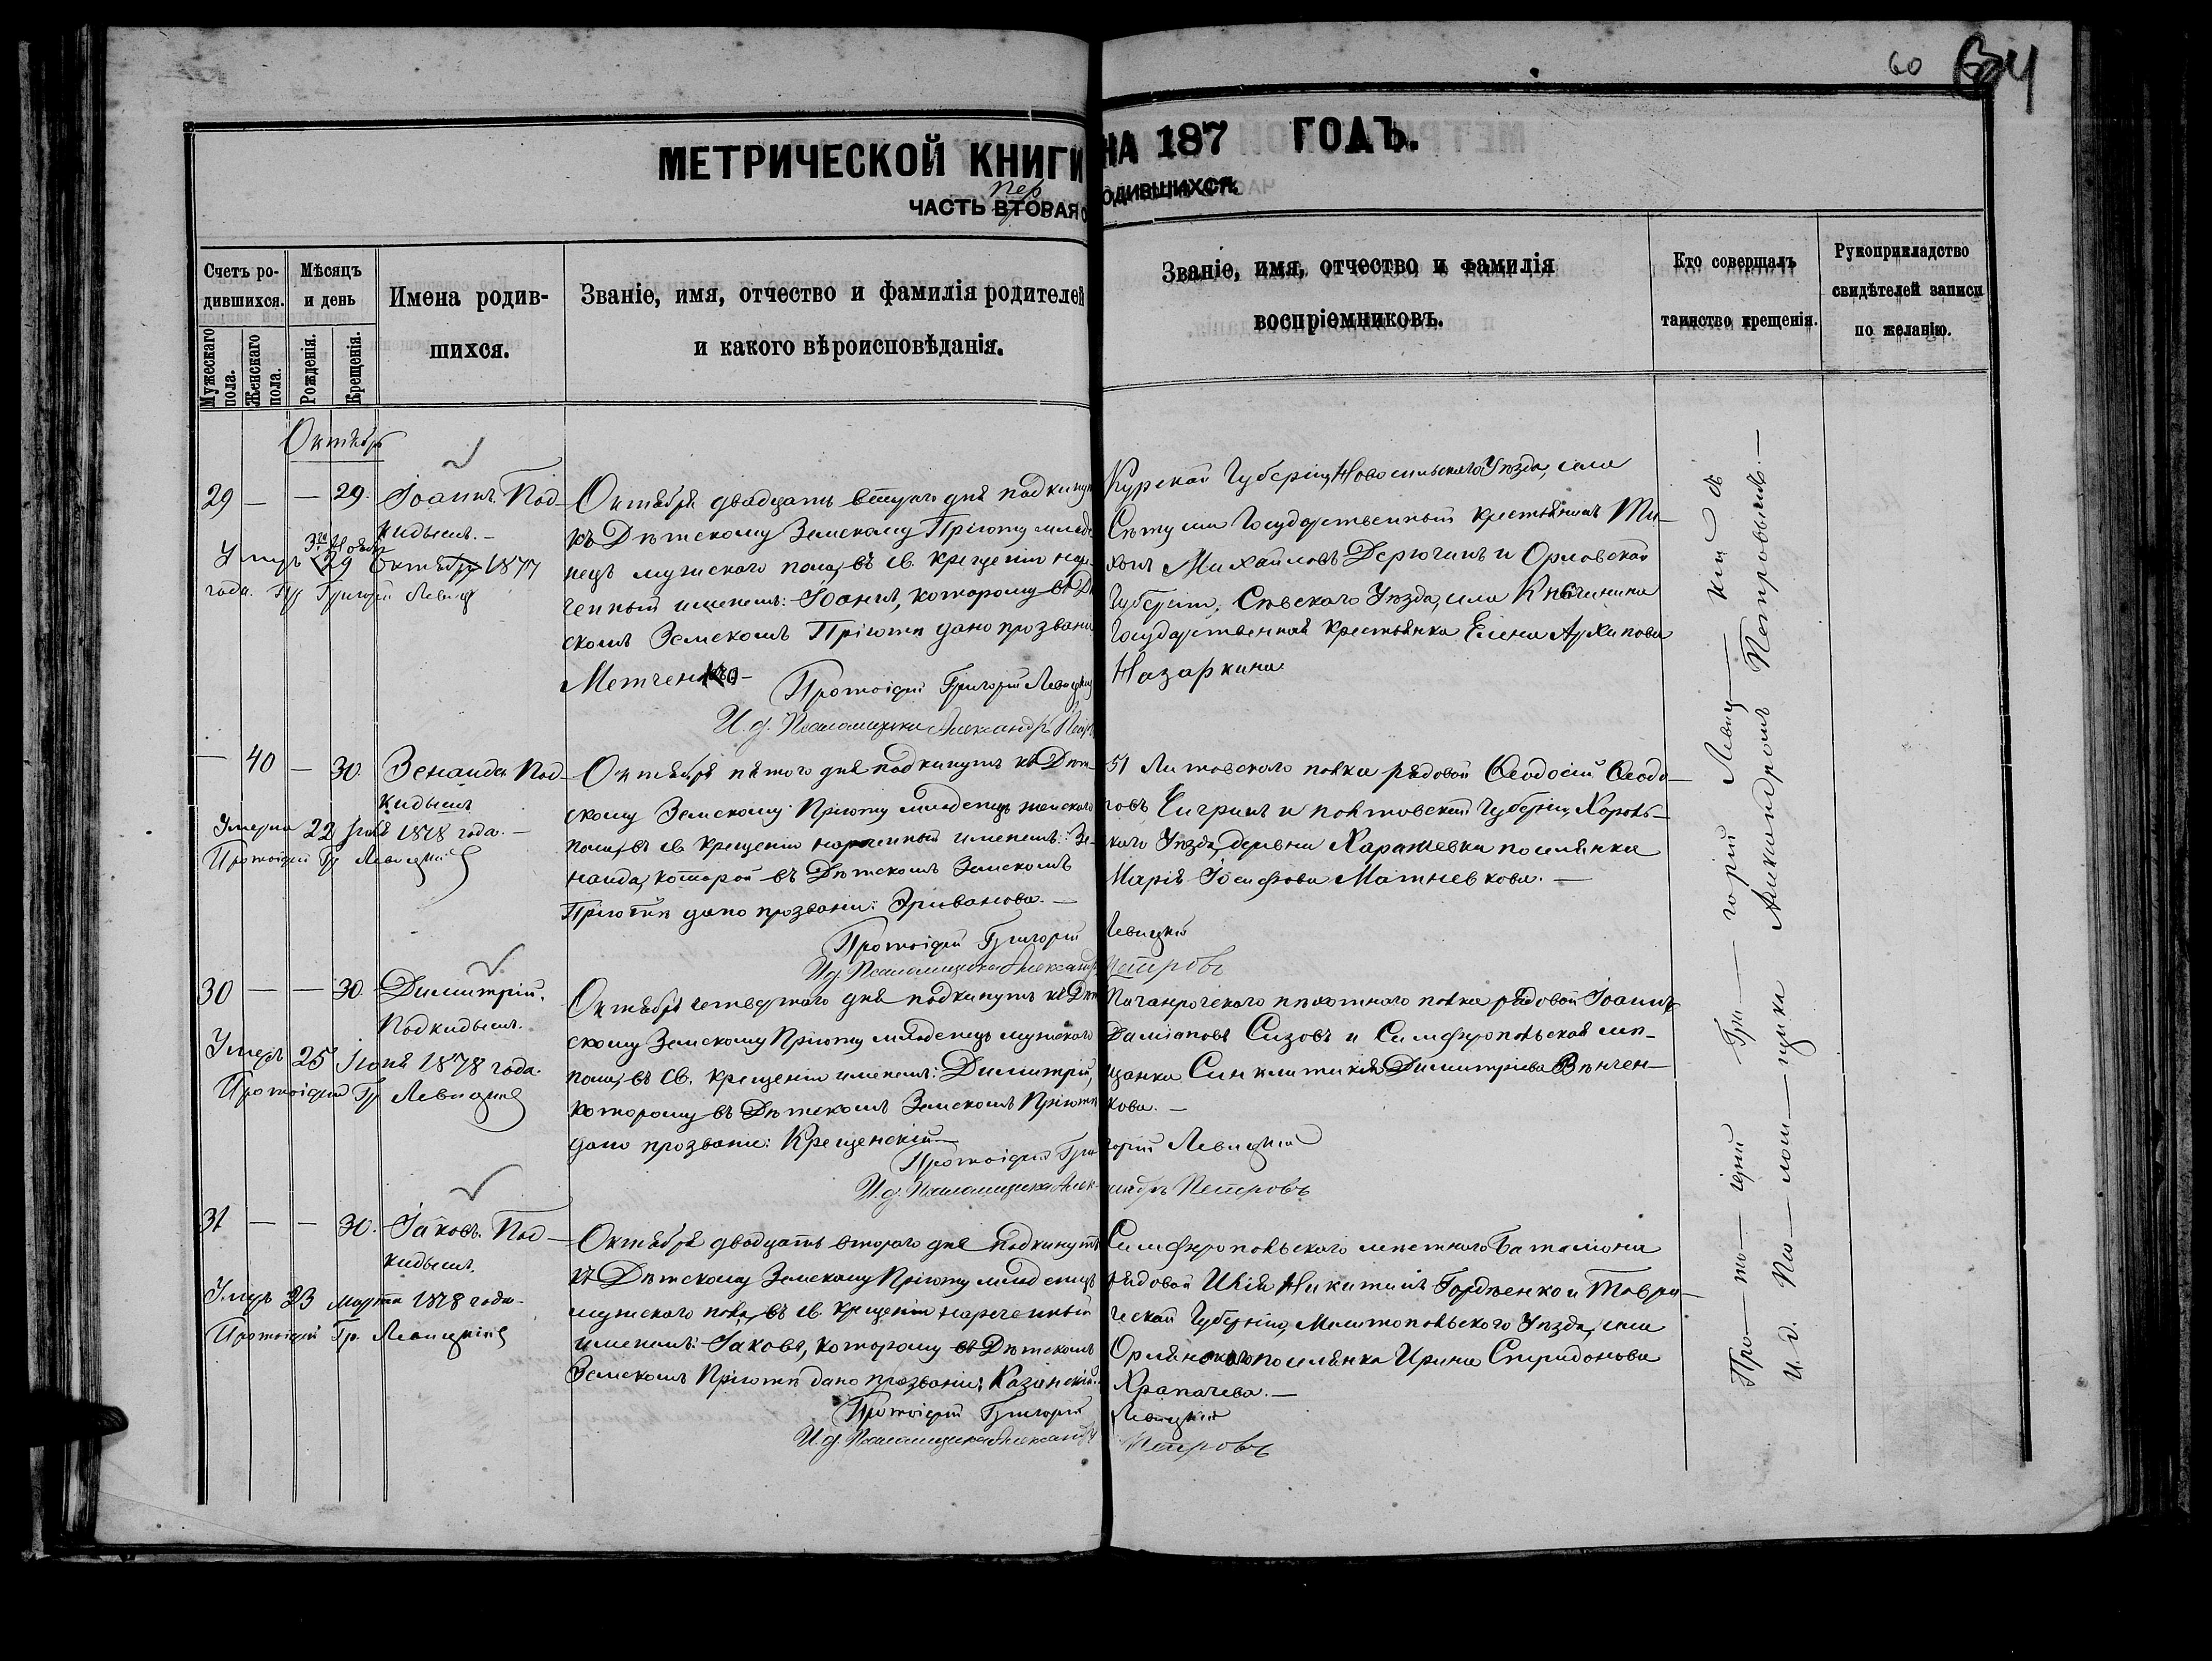 60 64
МЕТРИЧЕСКОЙ КНИГИ НА 187 ГОДЪ.
пер
ЧАСТЬ ВТОРАЯ О РОДИВШИХСЯ.
Счетъ ро-
дившихся.
Мужескаго пола.
Женскаго пола.
Мѣсяцъ
и день
Рожденія.
Крещенія.
Имена родив-
шихся.
Званіе, имя, отчество и фамилія родителей
и какого вѣроисповѣданія.
Званіе, имя, отчество и фамилія
воспріемниковъ.
Кто совершалъ
таинство крещенія.
Рукоприкладство
свидѣтелей записи
по желанію.
Октябрь
29 — — 29. Іоаннъ. Под-
кидышъ.—
Умеръ 29 Октября 1877
года. Григорій Левиц
Октября двадцать втораго дня подкину
къ Дѣтскому Земскому Пріюту младе
нецъ мужскаго пола, въ св. крещеніи наре
ченный именемъ: Іоаннъ, которому въ Дѣ
скомъ Земскомъ Пріютѣ дано прозвані
Протоіерей Григорій Левицкій
И. д. Псаломщика Александръ Петр
Курской Губерніи, Новосильскаго Уѣзда, села
Государственный крестьянинъ Ти-
хонъ Михайловъ Дерюгинъ и Орловской
Губерніи, Сѣвскаго Уѣзда, села
Государственная крестьянка Елена Архипова
Назаркина.
— 40 — 30. Зенаида Под-
кидышъ
Умерла 22 1878 года.—
Протоіерей Гр Левицкій
Октября пятого дня подкинутъ къ Дѣт-
скому Земскому Пріюту младенецъ женскаго
пола, въ св. крещеніи нареченный именемъ: Зе-
наида, которой въ Дѣтскомъ Земскомъ
Пріютѣ дано прозваніе: Эриванова.—
Протоіерей Григорій Левицкій
И д Псаломщика Александръ Петровъ
51 Литовскаго полка рядовой Ѳеодосій Ѳеодо-
ровъ Чигринъ и Полтовской Губерніи, Хороль-
каго Уѣзда, деревни поселянка
Марія Іосифова Матневкова.—
30 — — 30. Димитрій.
Подкидышъ.
Умеръ 25 1878 года.
Протоіерей Гр Левицкій
Октября четвертаго дня подкинутъ къ Дѣт
скому Земскому Пріюту младенецъ мужскаго
пола, въ св. крещеніи именемъ: Димитрій,
которому въ Дѣтскомъ Земскомъ Пріютѣ
дано прозваніе: Крещенскій.—
Протоіерей Григорій Левицкій
И. д. Псаломщика Александръ Петровъ
Таганрогскаго пѣхотнаго полка рядовой Іоаннъ
Даміановъ Сизовъ и Симферопольская мѣ-
щанка Синклитикія Димитріева Вѣнчен-
кова.—
31 — — 30. Іаковъ. Под-
кидышъ.
Умеръ 23 Марта 1878 года.
Протоіерей Гр. Левицкій
Октября двадцать втораго дня подкинутъ
къ Дѣтскому Земскому Пріюту младенецъ
мужскаго пола, въ св. крещеніи нареченный
именемъ: Іаковъ, которому въ Дѣтскомъ
Земскомъ Пріютѣ дано прозваніе: Казанскій.
Протоіерей Григорій Левицкій
И. д. Псаломщика Александръ Петровъ
Симферопольскаго мѣстнаго Баталіона
рядовой Илія Никитинъ Гордѣенко и Таври-
ческой Губерніи, Мелитопольскаго Уѣзда, села
поселянка Ирина Спиридонова
Храпачева.—
Про — то — іерей Гри — горій Левиц — кій съ
И. д. Пса — лом — щика Александромъ Петровымъ.—